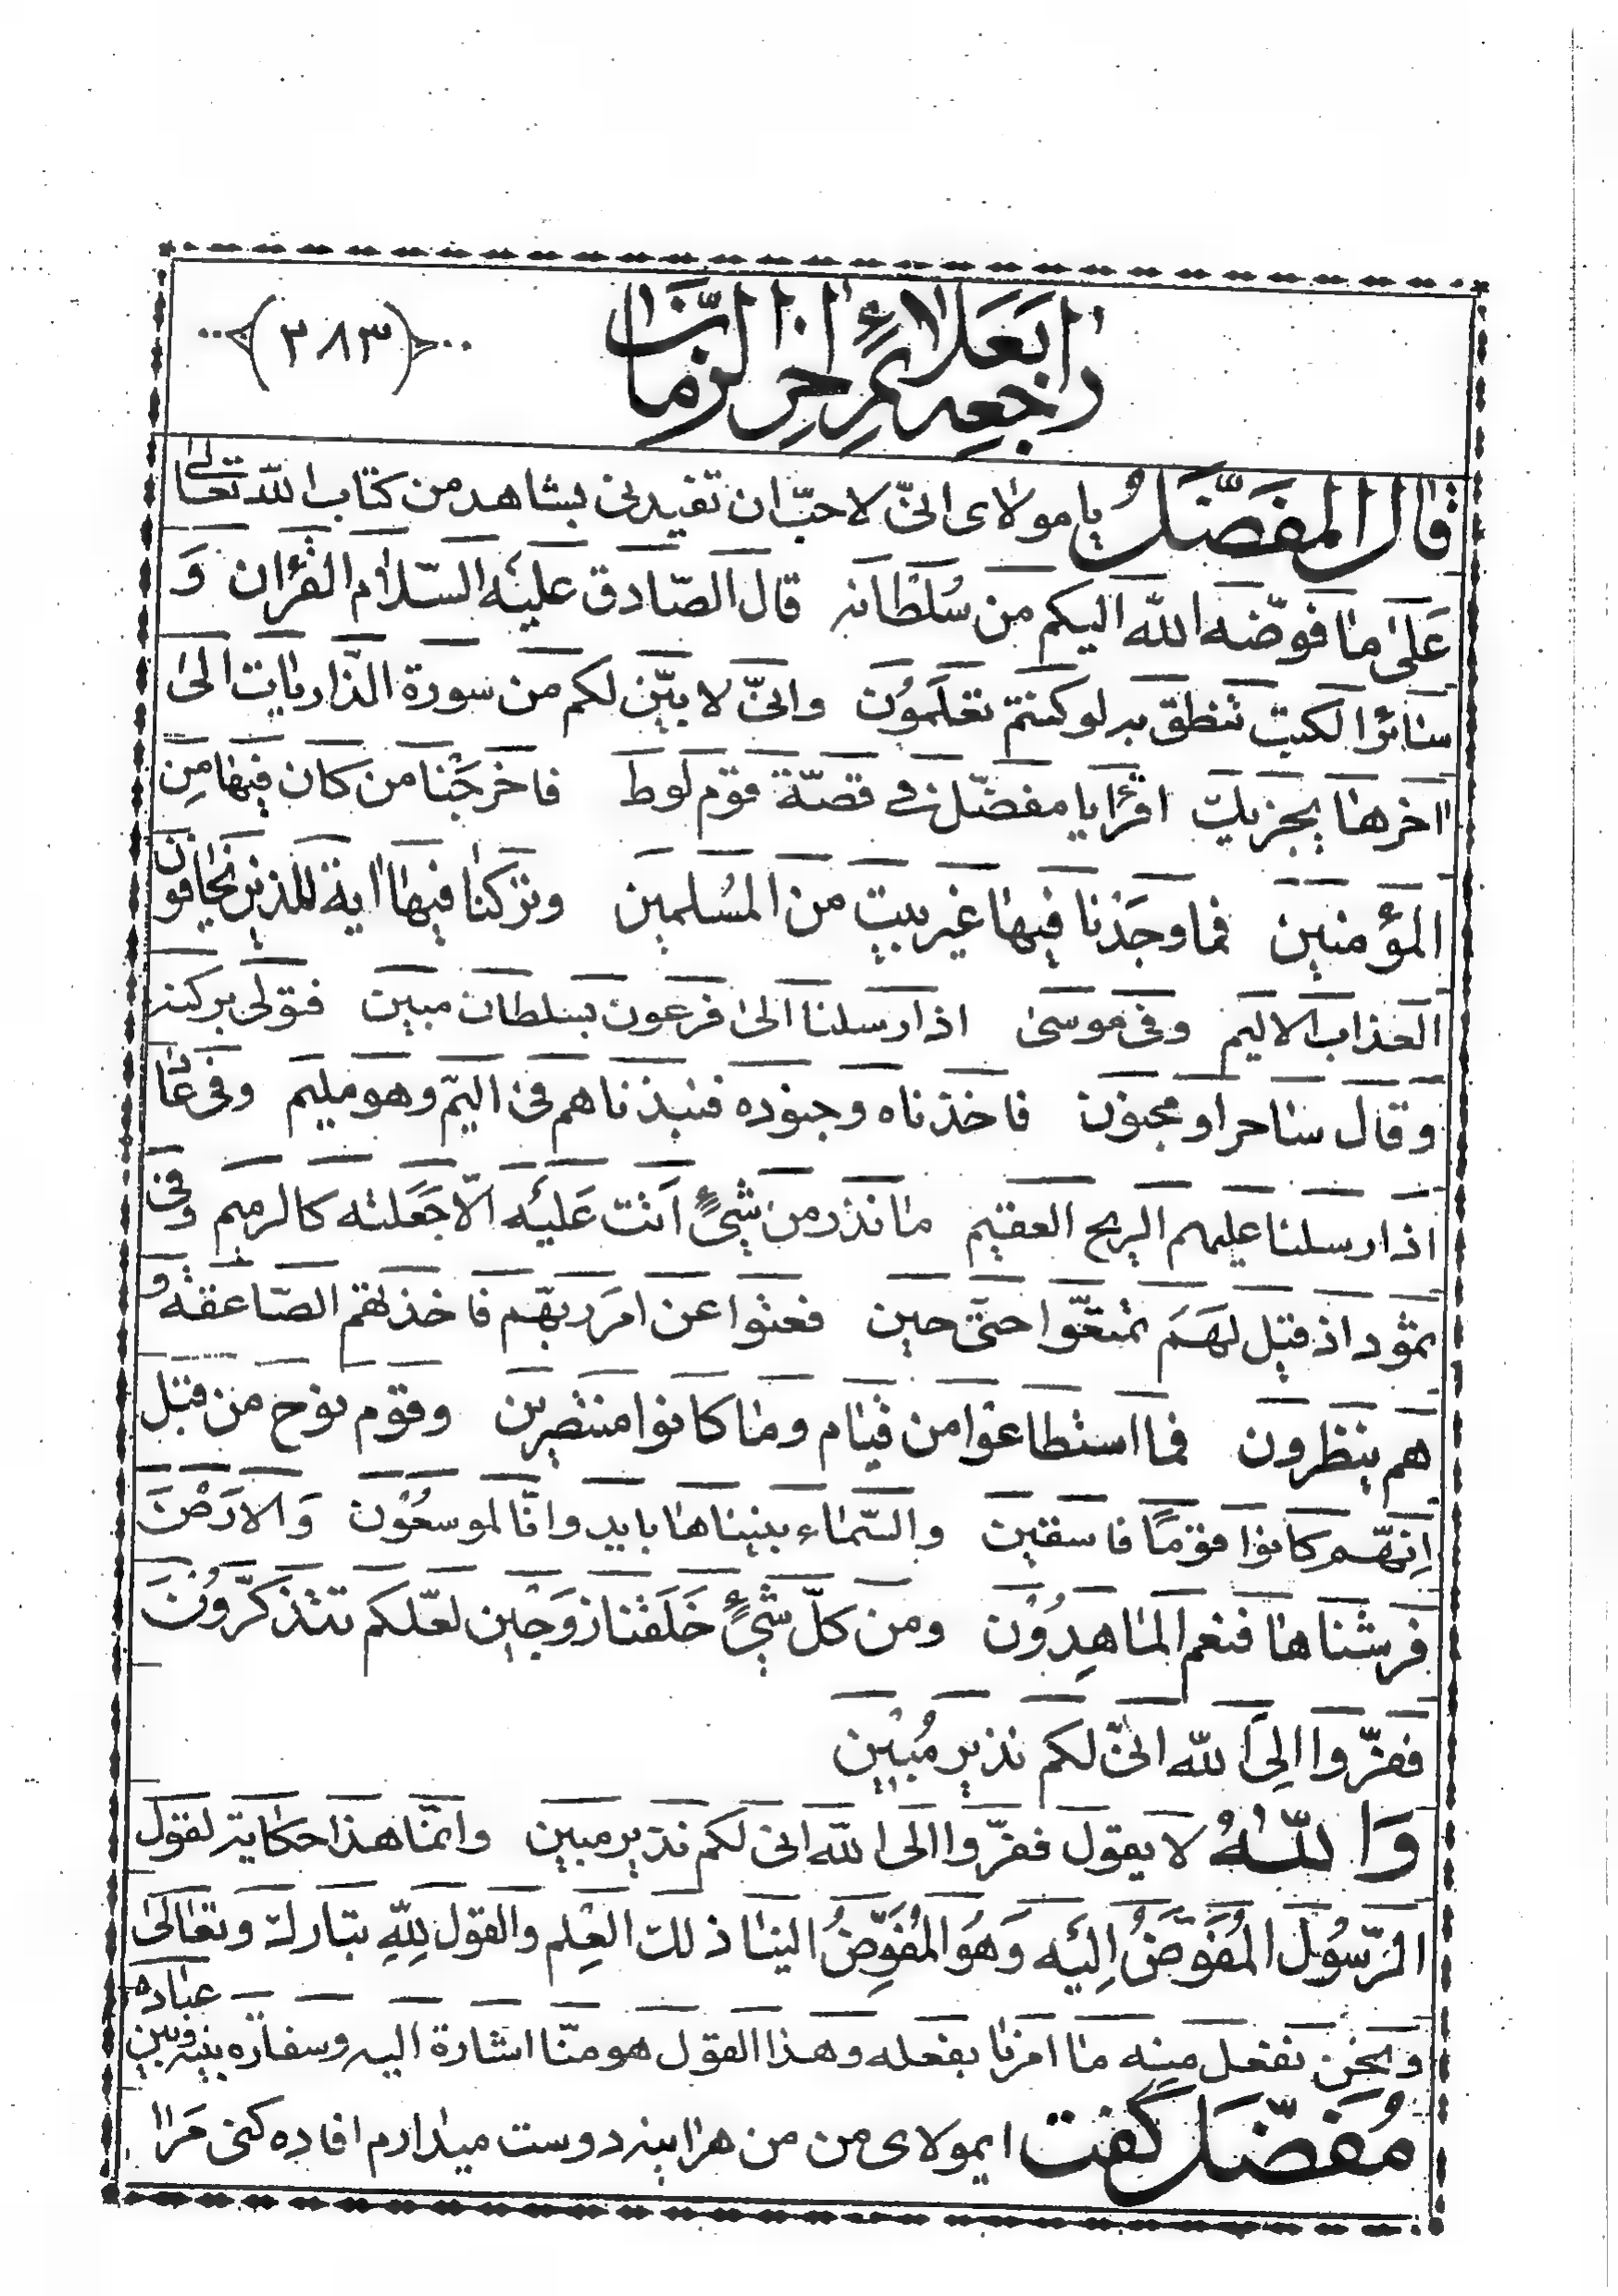 راجعه بعلائم اخر الزمان
(٣٨٣)
قال المفضّل يا مولاى انىّ لاحبّ ان تفيدنى بشاهد من كتاب اللّه تعالى
عَلىٰ مٰا فوّضه اللّه اليكم من سُلْطٰانه قال الصّادق عليه السّلام القرٔان وَ
سٰائر الكتب تنطق به لو كنتم تعلَموُن وانىّ لابيّن لكم من سورة الذّاريٰات الىٰ
اٰخرهٰا يجزيك اقرٔا يا مفضّل فى قصّة قوم لوط فاخرجْنا من كان فيهٰا مِن
المؤمنين فما وجَدْنا فيهٰا غير بيت من المسُلمين وتركنٰا فيهٰا اية للذين يخٰافون
العذاب الاليم وفى موسىٰ اذ ارسلنا الىٰ فرعون بسلطان مبين فتولى بركنه
وقال سٰاحر او مجنون فاخذناه وجنوده فنبذناهم فى اليّم وهو مليم وفى عٰاد
اذ ارسلنا عليهم الريح العقيم مٰا تذر من شىءٍ اَتت عَليه الّا جَعَلته كالرميم وفى
ثمود اذ قيل لهَم تمتعّوا حتىّ حين فعتوا عن امر ربهّم فاخذتهم الصّاعقة و
هم ينظرون فما استطاعوا من قيٰام ومٰا كانوا منتصرين وقوم نوح من قبل
اِنهّم كانوا قومًا فاسقين والسّمٰاء بنيناهٰا بايد وانّا لموسعُون وَالارَضَ
فرشناهٰا فنعم المٰاهِدوُن ومن كلّ شىءٍ خَلَقنا زوَجين لعّلكم تتذكّروُنَ
ففرّوا الِىَ اللّه انىّ لكم نذير مُبين
وَاللّٰهُ لا يقول ففرّوا الى اللّه انى لكم نذير مبين وانمّٰا هذا حكٰاية لقول
الرّسوُل المُفوَّضُ اِليَه وَهُوَ المُفَوِّضُ الينٰا ذلك العِلم والقول لِلّهِ تبٰارك وتعٰالىٰ
ونحن نفعل منه مٰا امرنٰا بفعله وهذا القول هو منّا اشارة اليه وسفارة بينه وبين عبٰاده
مُفضّل گفت ايمولاى من من هراينه دوست ميدٰارم افاده كنى مَرٰا